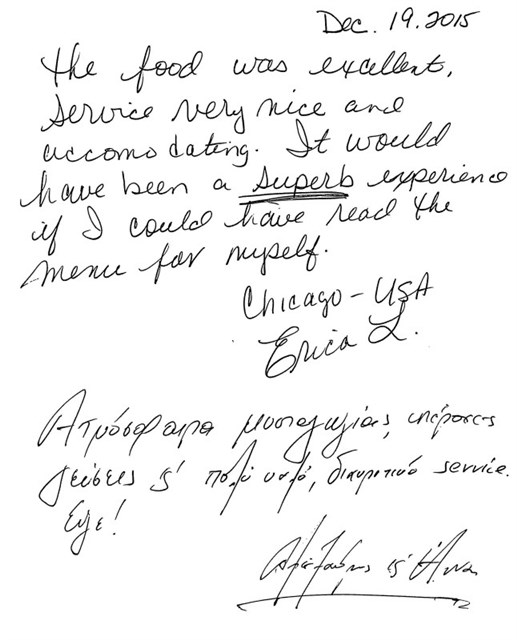 Dec. 19. 2015
the food was excellent.
Service very nice and
accomodating. It would
have been a superb experience
if I could have read the
menu for myself.
Chicago - USA
Erica L.
Ατμόσφαιρα μυσταγωγίας, υπέροχες
γεύσεις κ' πολύ καλό, διακριτικό service.
Εύγε!
κ' Άννα